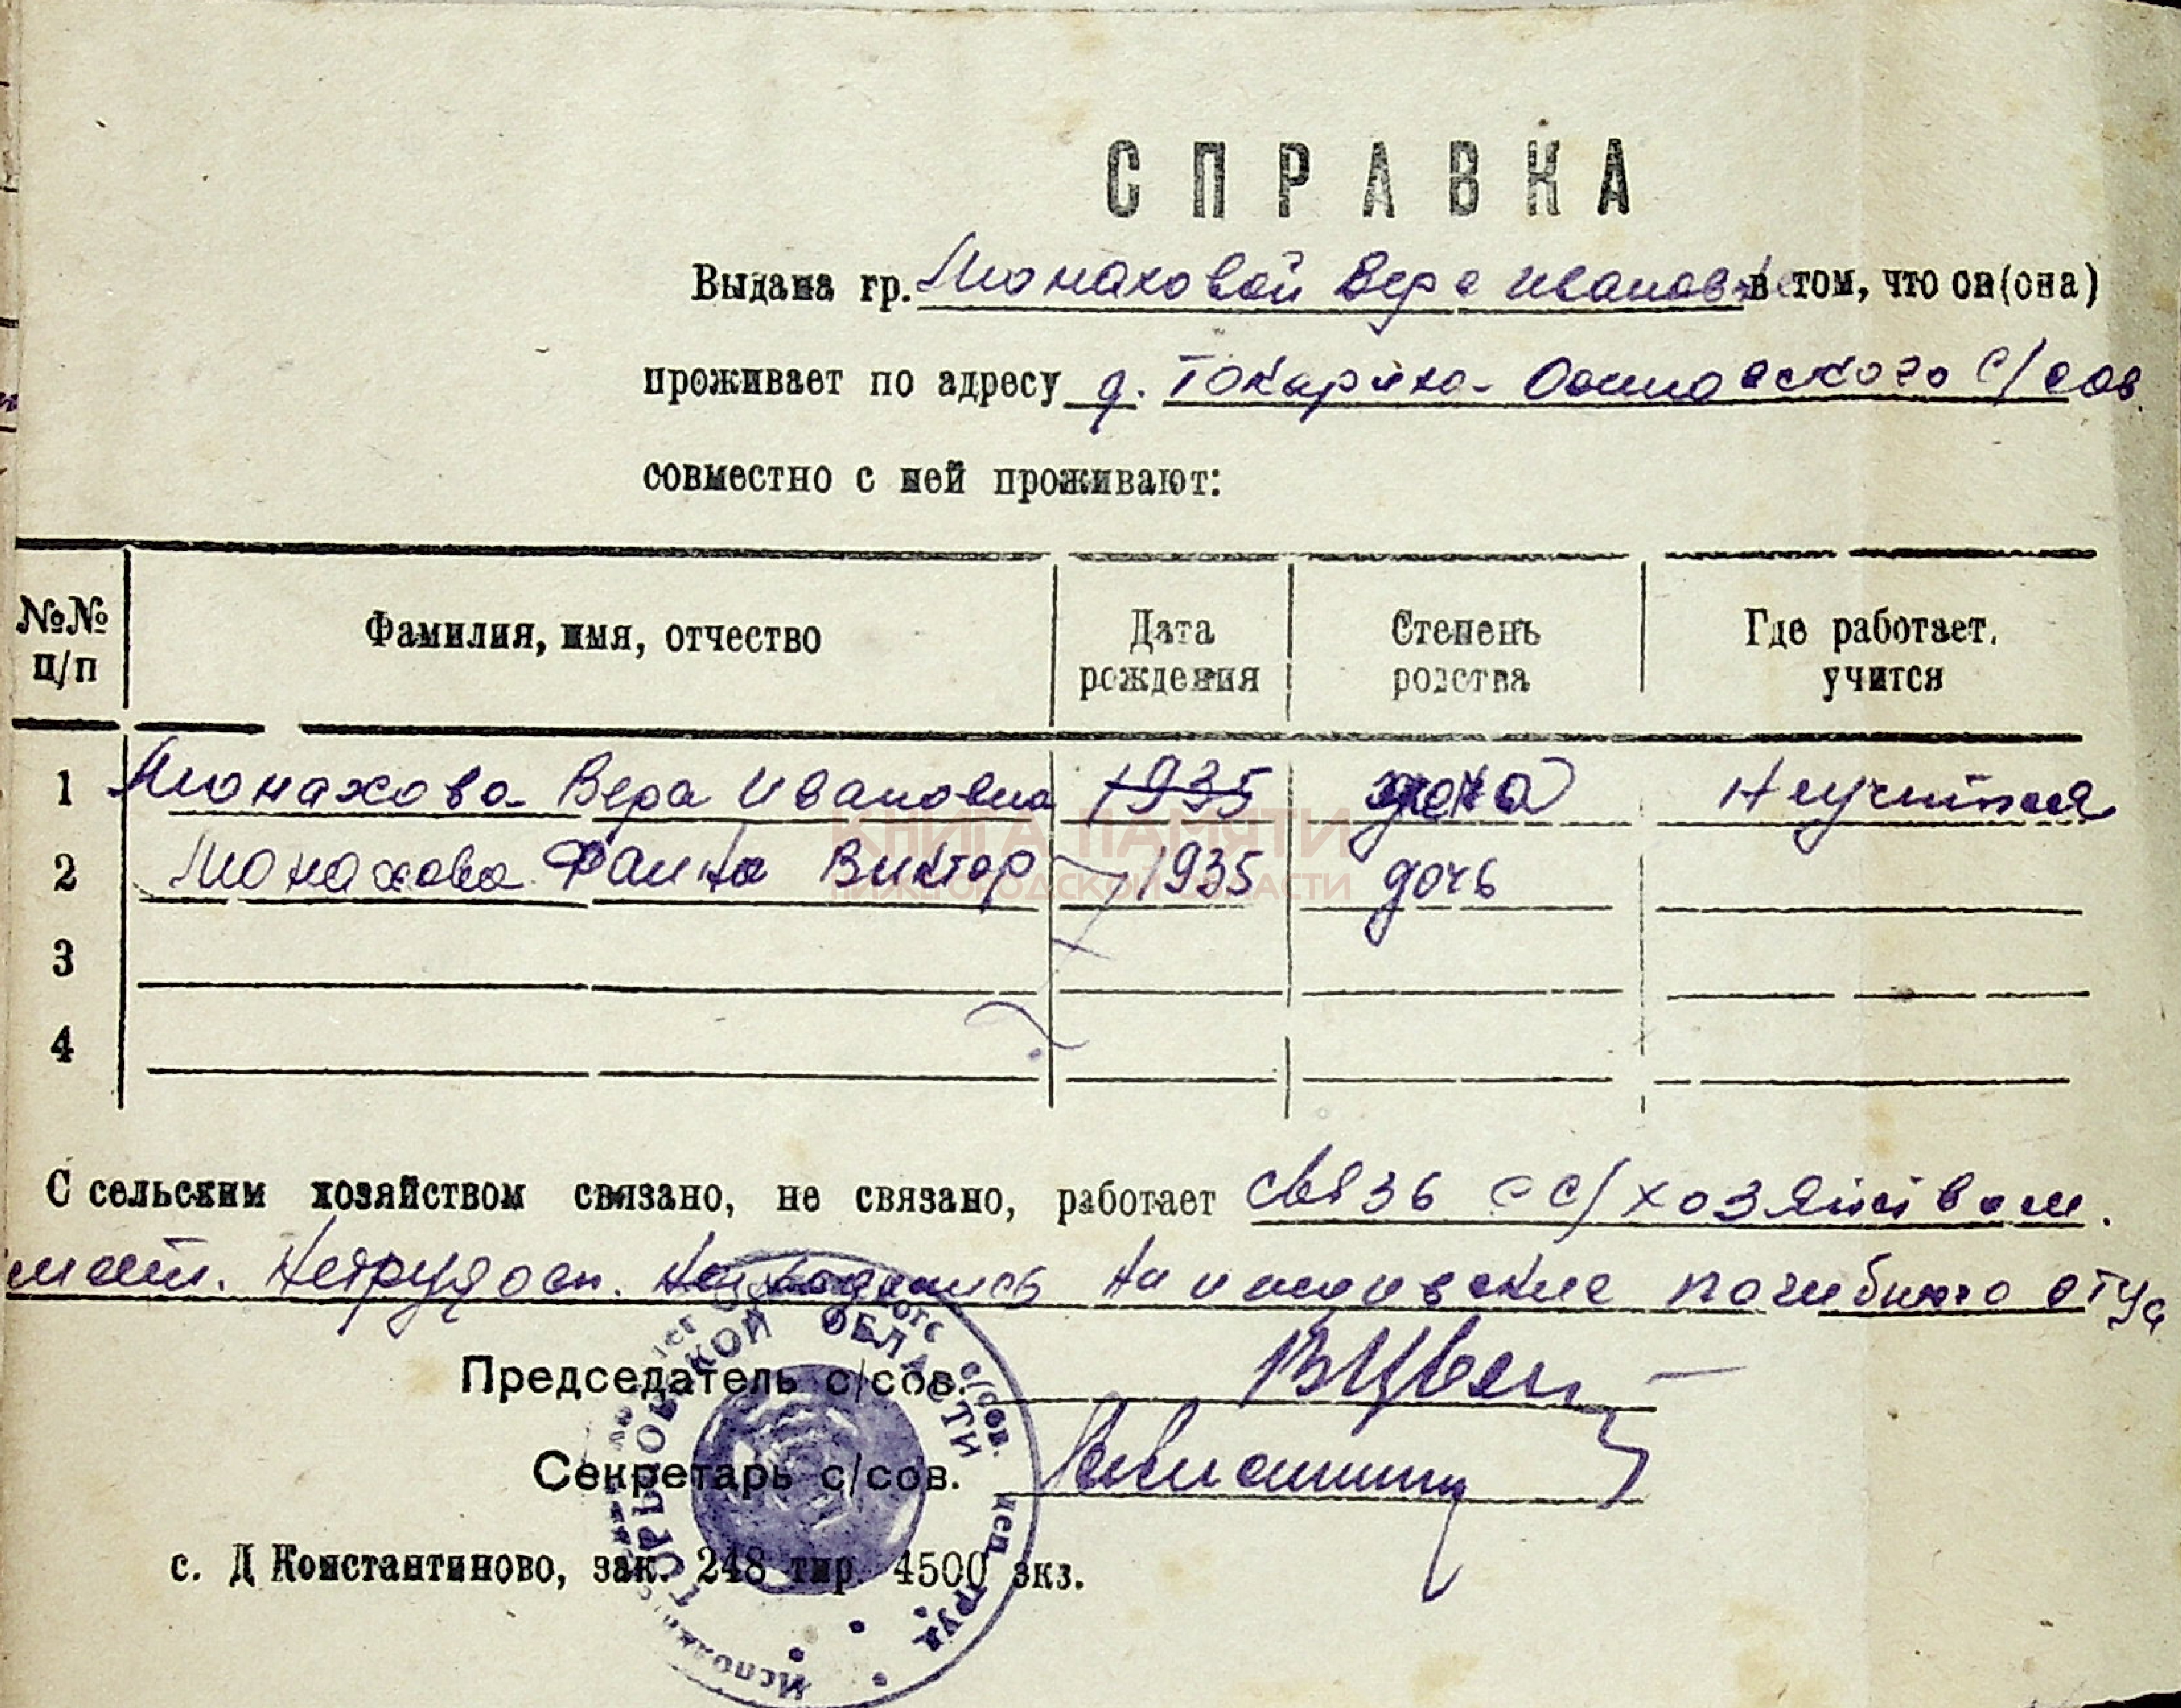 СПРАВКА
Выдана гр. Монаховой Вере Ивановне в том, что он(она)
проживает по адресу д. Токариха- с/сов.
совместно с ней проживают:
№№ п/п Фамилия, имя, отчество Дата рождения Степень родства Где работает, учится
1 Монахова Вера Ивановна 1935 жена Неучится
КНИГА ПАМЯТИ
2 Монахова Фаина Виктор 1935 дочь
НИЖЕГОРОДСКОЙ ОБЛАСТИ
3
4
С сельским хозяйством связано, не связано, работает связь с с/хозяйством.
имеет. Нетрудосп. Находились на иждивение погибшего отца
Председатель с/сов.
Секретарь с/сов.
с. Д Константиново, зак. 248 тир. 4500 экз.
ГОРЬКОВСКОЙ ОБЛАСТИ
с/сов. деп. труд.